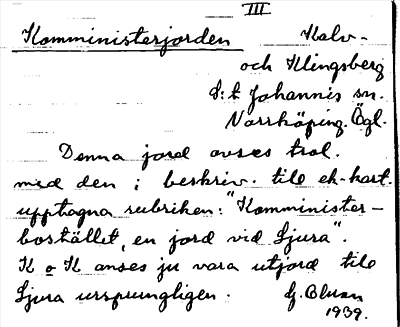 III
Komministerjorden Kalv-
och Klingsberg
S:t Johannis sn.
Norrköping. Ögl.
Denna jord avses trol.
med den i beskriv. till ek-kart.
upptagna rubriken: "Komminister-
bostället, en jord vid Ljura".
K o K anses ju vara utjord till
Ljura ursprungligen.
1939.